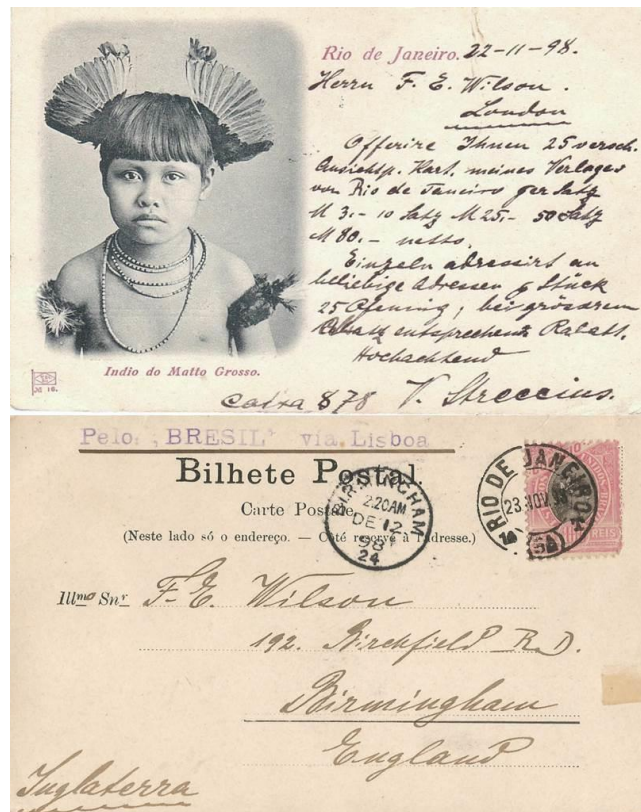 Rio de Janeiro. 22-11-98.
Herrn F. E. Wilson.
London
Offerire Ihnen 25 versch.
Ansichtsp. Kart. meines Verlages
von Rio de Janeiro per Satz
M 3.- 10 Satz M 25.- 50 Satz
M 80.- netto.
Einzeln adressirt an
beliebige Adressen p Stück
25 Pfennig, bei grösseren
entsprechend Rabatt.
Hochachtend
Caixa 878 V. Streccius.
Indio do Matto Grosso.
№ 16.
Pelo "BRESIL" via Lisboa
Bilhete Postal.
Carte Postale.
(Neste lado só o endereço. — Côté reservé à l'adresse.)
BIRMINGHAM
2.20AM
DE 12
98
24
RIO DE JANEIRO
23 NOV
REIS
Illmo Snr F. E. Wilson
192. Birchfield R.D.
Birmingham
England
Inglaterra